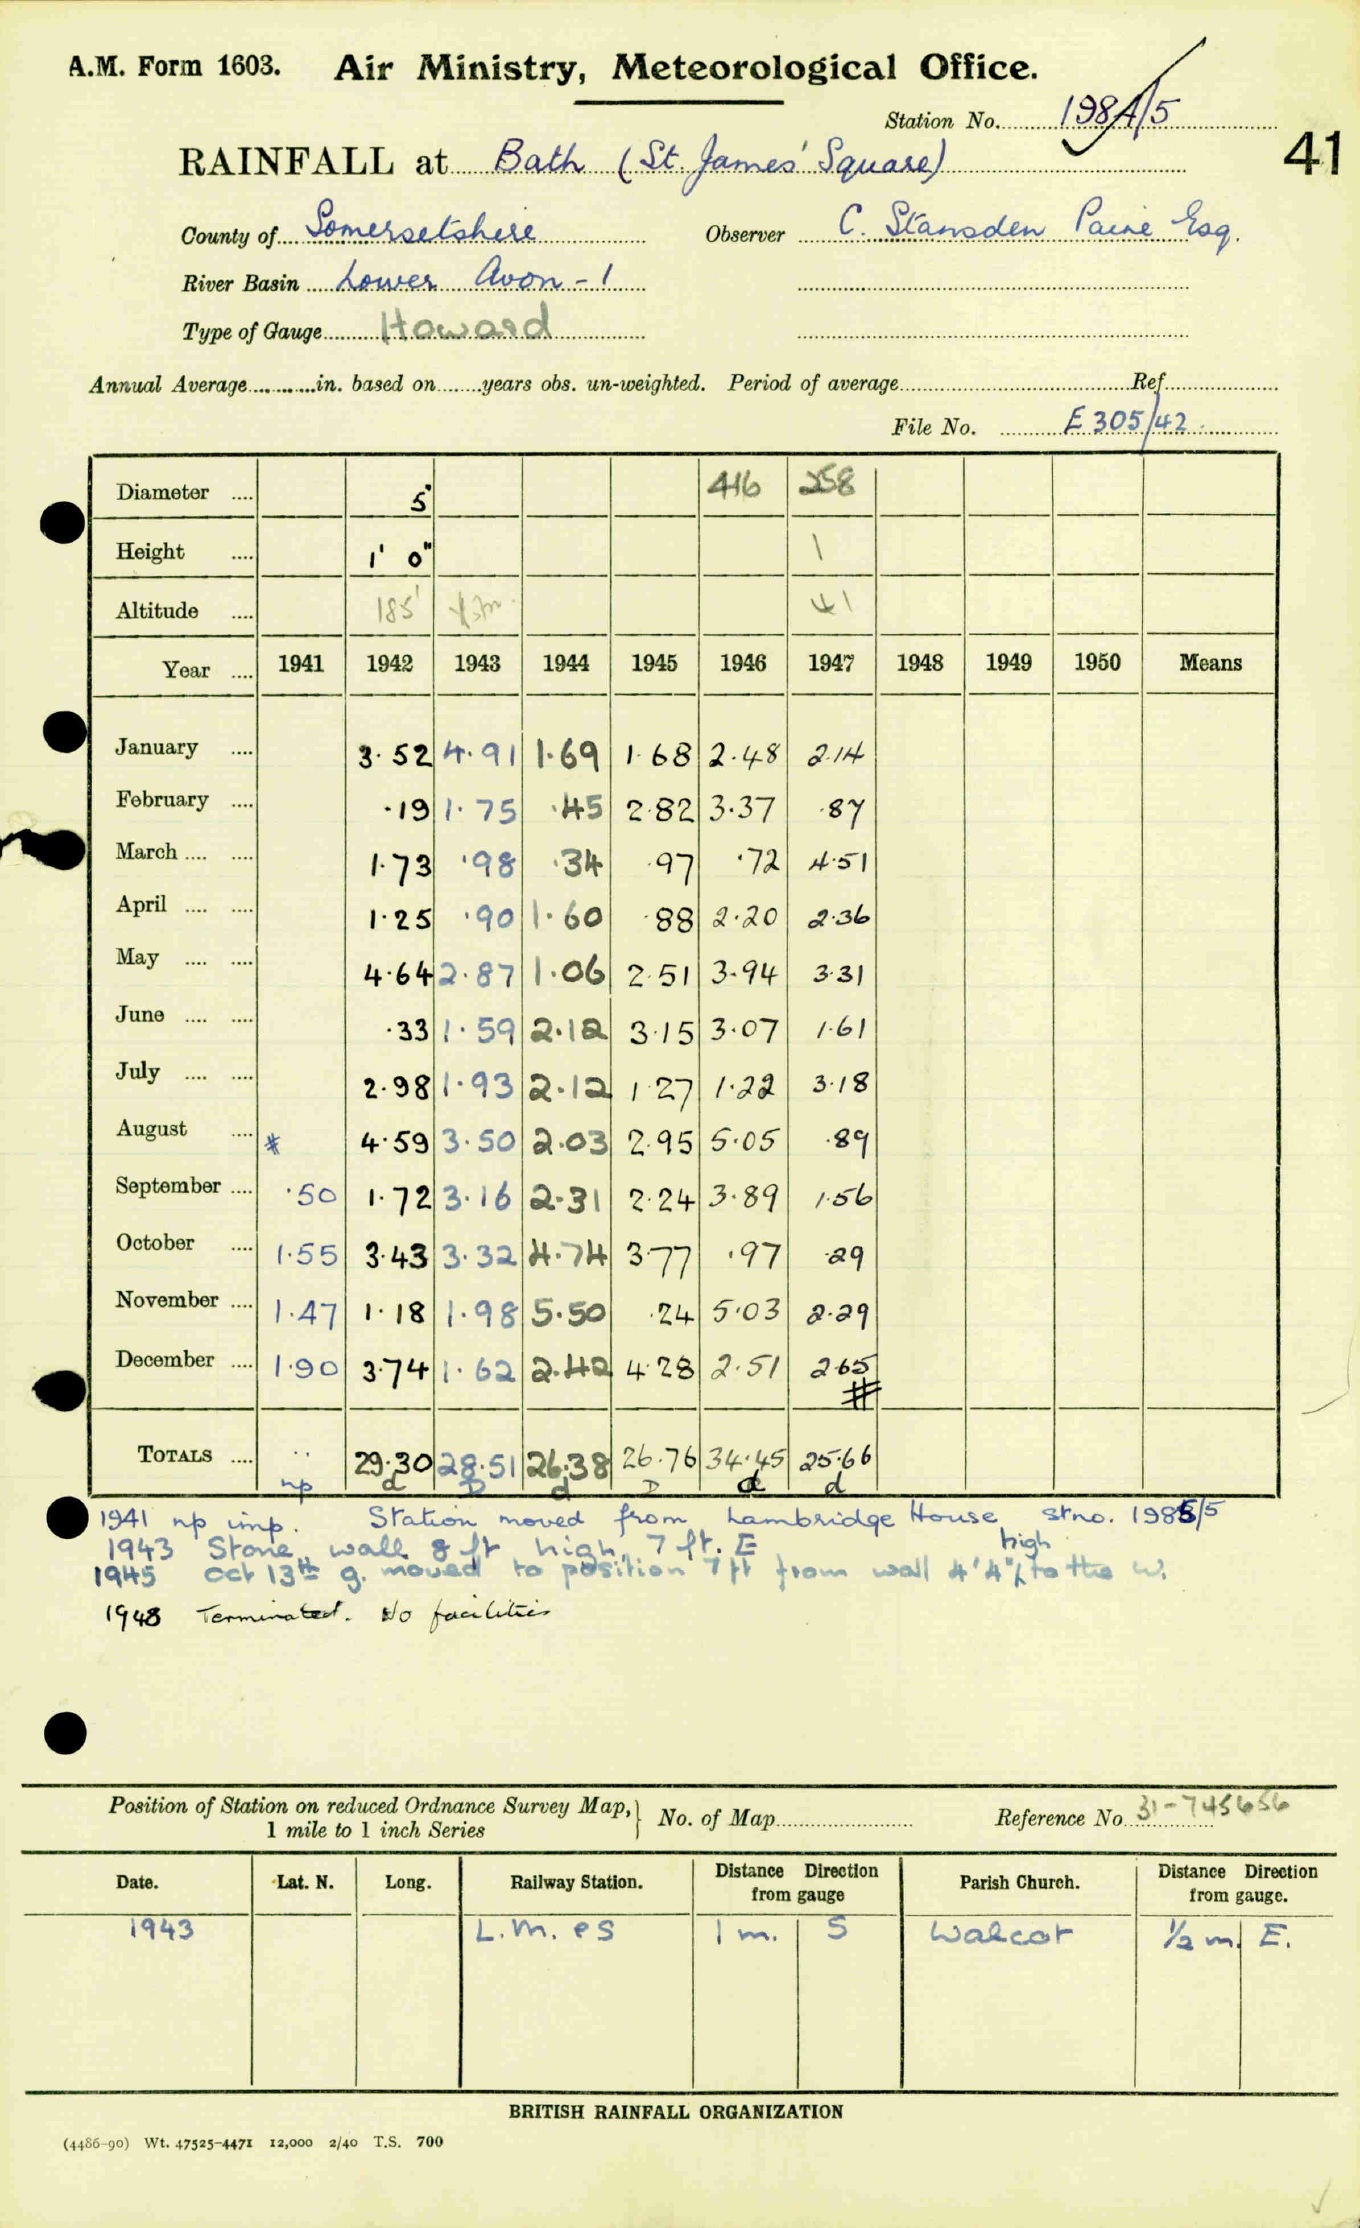 A.M. Form 1603. Air Ministry, Meteorological Office.
Station No. 1984/5
41
RAINFALL at Bath (St. James' Square)
County of Somersetshire Observer C. Stansden Paine Esq.
River Basin Lower Avon - 1
Type of Gauge Howard
Annual Average in. based on years obs. un-weighted. Period of average Ref
File No. E 305/42
Diameter 5" 416 258
Height 1' 0" 1
Altitude 185' 41
Year 1941 1942 1943 1944 1945 1946 1947 1948 1949 1950 Means
January 3.52 4.91 1.69 1.68 2.48 2.14
February .19 1.75 .45 2.82 3.37 .87
March 1.73 .98 .34 .97 .72 4.51
April 1.25 .90 1.60 .88 2.20 2.36
May 4.64 2.87 1.06 2.51 3.94 3.31
June .33 1.59 2.12 3.15 3.07 1.61
July 2.98 1.93 2.12 1.27 1.22 3.18
August * 4.59 3.50 2.03 2.95 5.05 .89
September .50 1.72 3.16 2.31 2.24 3.89 1.56
October 1.55 3.43 3.32 4.74 3.77 .97 .29
November 1.47 1.18 1.98 5.50 .24 5.03 2.29
December 1.90 3.74 1.62 2.42 4.28 2.51 2.65
#
TOTALS .. 29.30 28.51 26.38 26.76 34.45 25.66
np d D d D d d
1941 np imp. Station moved from Lambridge House st no. 1985/5
1943 Stone wall 8 ft high 7 ft. E
1945 Oct 13th g. moved to position 7 ft from wall 4'4" high to the W.
1948 Terminated. No facilities
Position of Station on reduced Ordnance Survey Map, 1 mile to 1 inch Series } No. of Map Reference No 31-745656
Date. Lat. N. Long. Railway Station. Distance Direction from gauge Parish Church. Distance Direction from gauge.
1943 L.M. & S 1 m. S Walcot 1/2 m. E.
BRITISH RAINFALL ORGANIZATION
(4486-90) Wt. 47525-4471 12,000 2/40 T.S. 700